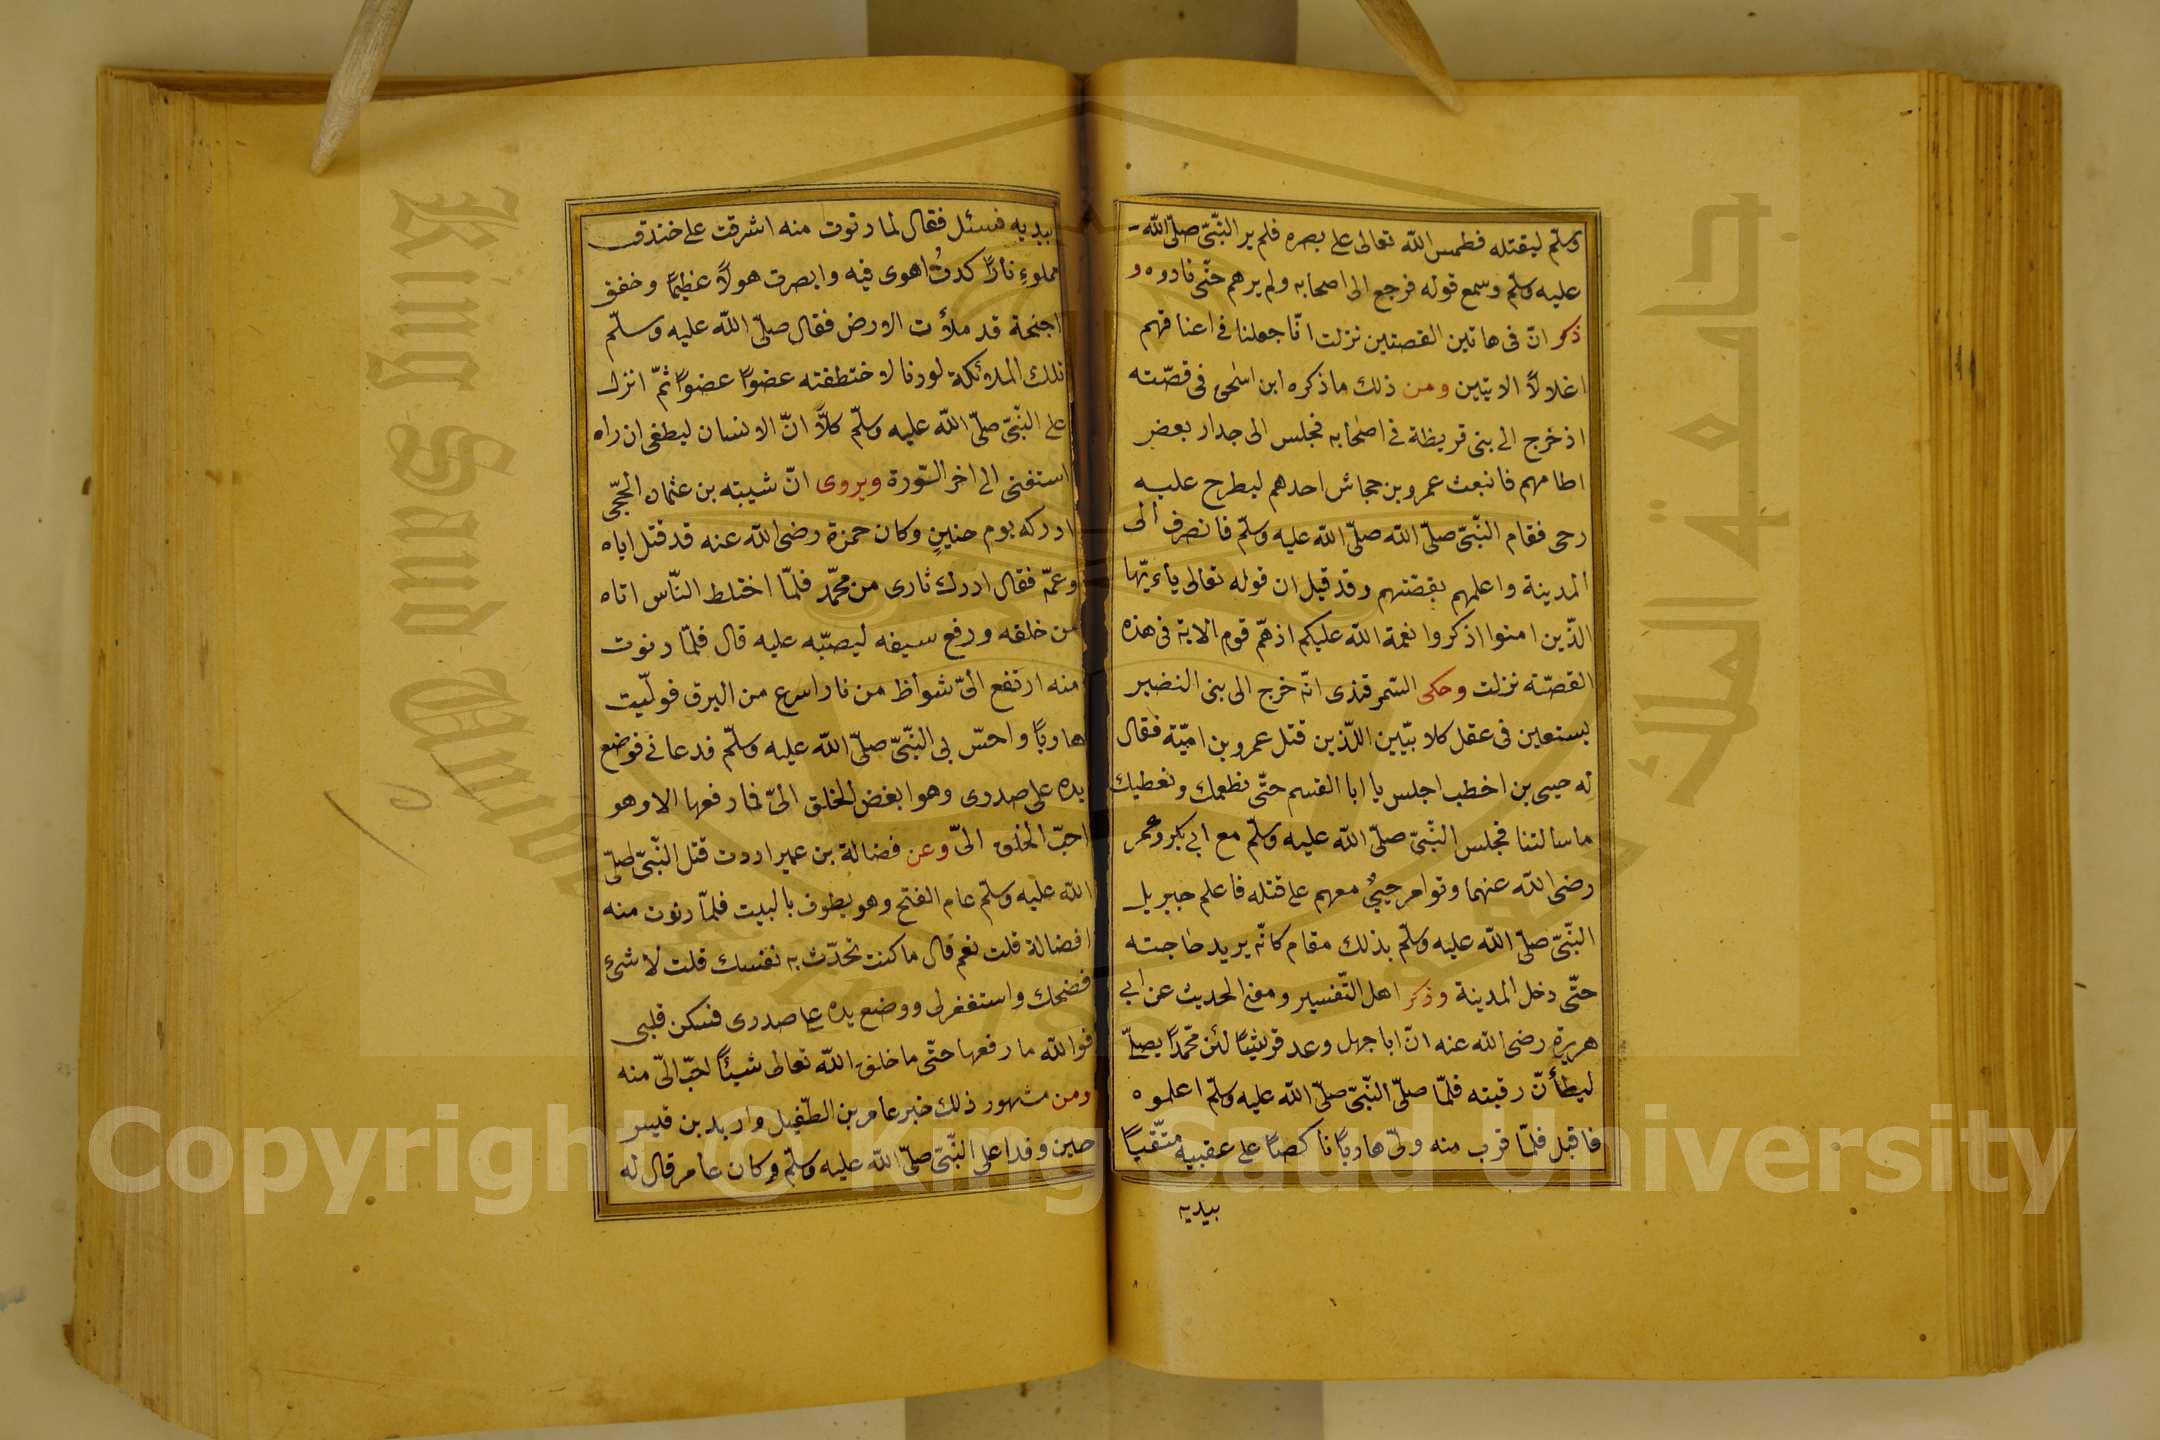 وسلّم ليقتله فطمس الله تعالى على بصره فلم ير النّبيّ صلّى الله
عليه وسلّم وسمع قوله فرجع الى اصحابه ولم يرهم حتّى نادوه و
ذكر انّ فى هاتين القصتين نزلت انّا جعلنا فى اعناقهم
اغلالاً الايتين ومن ذلك ما ذكره ابن اسحق فى قصّته
اذ خرج الى بنى قريظة فى اصحابه فجلس الى جدار بعض
اطامهم فانبعث عمرو بن جحاش احدهم ليطرح عليه
رحى فقام النّبيّ صلّى الله صلّى الله عليه وسلّم فانصرف الى
المدينة واعلمهم بقصّتهم وقد قيل ان قوله تعالى ياءيّها
الذّين امنوا اذكروا نعمة الله عليكم اذ همّ قوم الاية فى هذه
القصّته نزلت وحكى السّمرقندى انّه خرج الى بنى النضير
يستعين فى عقل كلابيّين اللّذين قتل عمرو بن اميّة فقال
له حيى بن اخطب اجلس يا ابا القسم حتّى نطعمك ونعطيك
ما سالتنا فجلس النّبيّ صلّى الله عليه وسلّم مع ابى بكر وعمر
رضى الله عنهما وتوامر حيىّ معهم على قتله فاعلم جبريل
النّبيّ صلّى الله عليه وسلّم بذلك مقام كانّه يريد حاجته
حتّى دخل المدينة وذكر اهل التّفسير ومعنى الحديث عن ابى
هريرة رضى الله عنه انّ ابا جهل وعد قريشاً لئن محمّداً يصلّى
ليطأنّ رقبته فلمّا صلّى النّبيّ صلّى الله عليه وسلّم اعلموه
فاقبل فلمّا قرب منه ولىّ هارباً ناكصاً على عقبيه متّقياً
بيديه
بيديه فسئل فقال لما دنوت منه اشرقت على خندق
مملوءٍ ناراً كدتُ اهوى فيه وابصرت هولاً عظيماً وخفق
اجنحة قد ملأت الارض فقال صلّى الله عليه وسلّم
تلك الملائكة لو دنا لاختطفته عضواً عضواً ثمّ انزل
على النّبيّ صلّى الله عليه وسلّم كلاّ انّ الانسان ليطغى ان راه
استغنى الى اخر السّورة ويروى انّ شيبته بن عثمان الحجّبى
ادركه يوم حنينٍ وكان حمزة رضى الله عنه قد قتل اباه
وعمّه فقال ادرك ثارى من محمّد فلمّا اختلط النّاس اتاه
من خلفه ورفع سيفه ليصبّه عليه قال فلمّا دنوت
منه ارتفع الىّ شواظ من نار اسرع من البرق فولّيت
هارباً واحسّ بى النّبيّ صلّى الله عليه وسلّم فدعانى فوضع
يده على صدرى وهو ابغض الخلق الىّ فما رفعها الا وهو
احبّ الخلق الىّ وعن فضالة بن عمير اردت قتل النّبيّ صلّى
الله عليه وسلّم عام الفتح وهو يطوف بالبيت فلمّا دنوت منه
افضالة قلت نعم قال ما كنت تحدّث به نفسك قلت لا شىء
فضحك واستغفر لى ووضع يده على صدرى فسكن قلبى
فوالله ما رفعها حتّى ما خلق الله تعالى شيئاً احبّ الىّ منه
ومن مشهور ذلك خبر عامر بن الطّفيل واربد بن قيس
حين وفدا على النّبيّ صلّى الله عليه وسلّم وكان عامر قال له
King Saud University
جامعة الملك سعود
1957
Copyright © King Saud University